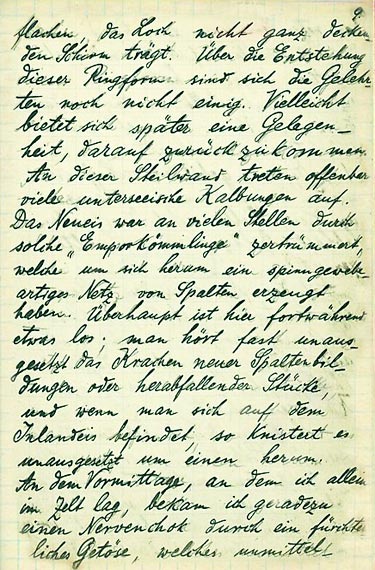 9
flachen, das Loch nicht ganz decken-
den Schirm trägt. Über die Entstehung
dieser Ringform sind sich die Gelehr-
ten noch nicht einig. Vielleicht
bietet sich später eine Gelegen-
heit, darauf zurückzukommen.
An dieser Steilwand treten offenbar
viele unterseeische Kalbungen auf.
Das Neueis war an vielen Stellen durch
solche „Emporkömmlinge" zertrümmert,
welche um sich herum ein spinngewebe-
artiges Netz von Spalten erzeugt
haben. Überhaupt ist hier fortwährend
etwas los; man hört fast unaus-
gesetzt das Krachen neuer Spaltenbil-
dungen oder herabfallender Stücke,
und wenn man sich auf dem
Inlandeis befindet, so knistert es
unausgesetzt um einen herum.
An dem Vormittage, an dem ich allein
im Zelt lag, bekam ich geradezu
einen Nervenchok durch ein fürchter
liches Getöse, welches unmittelb